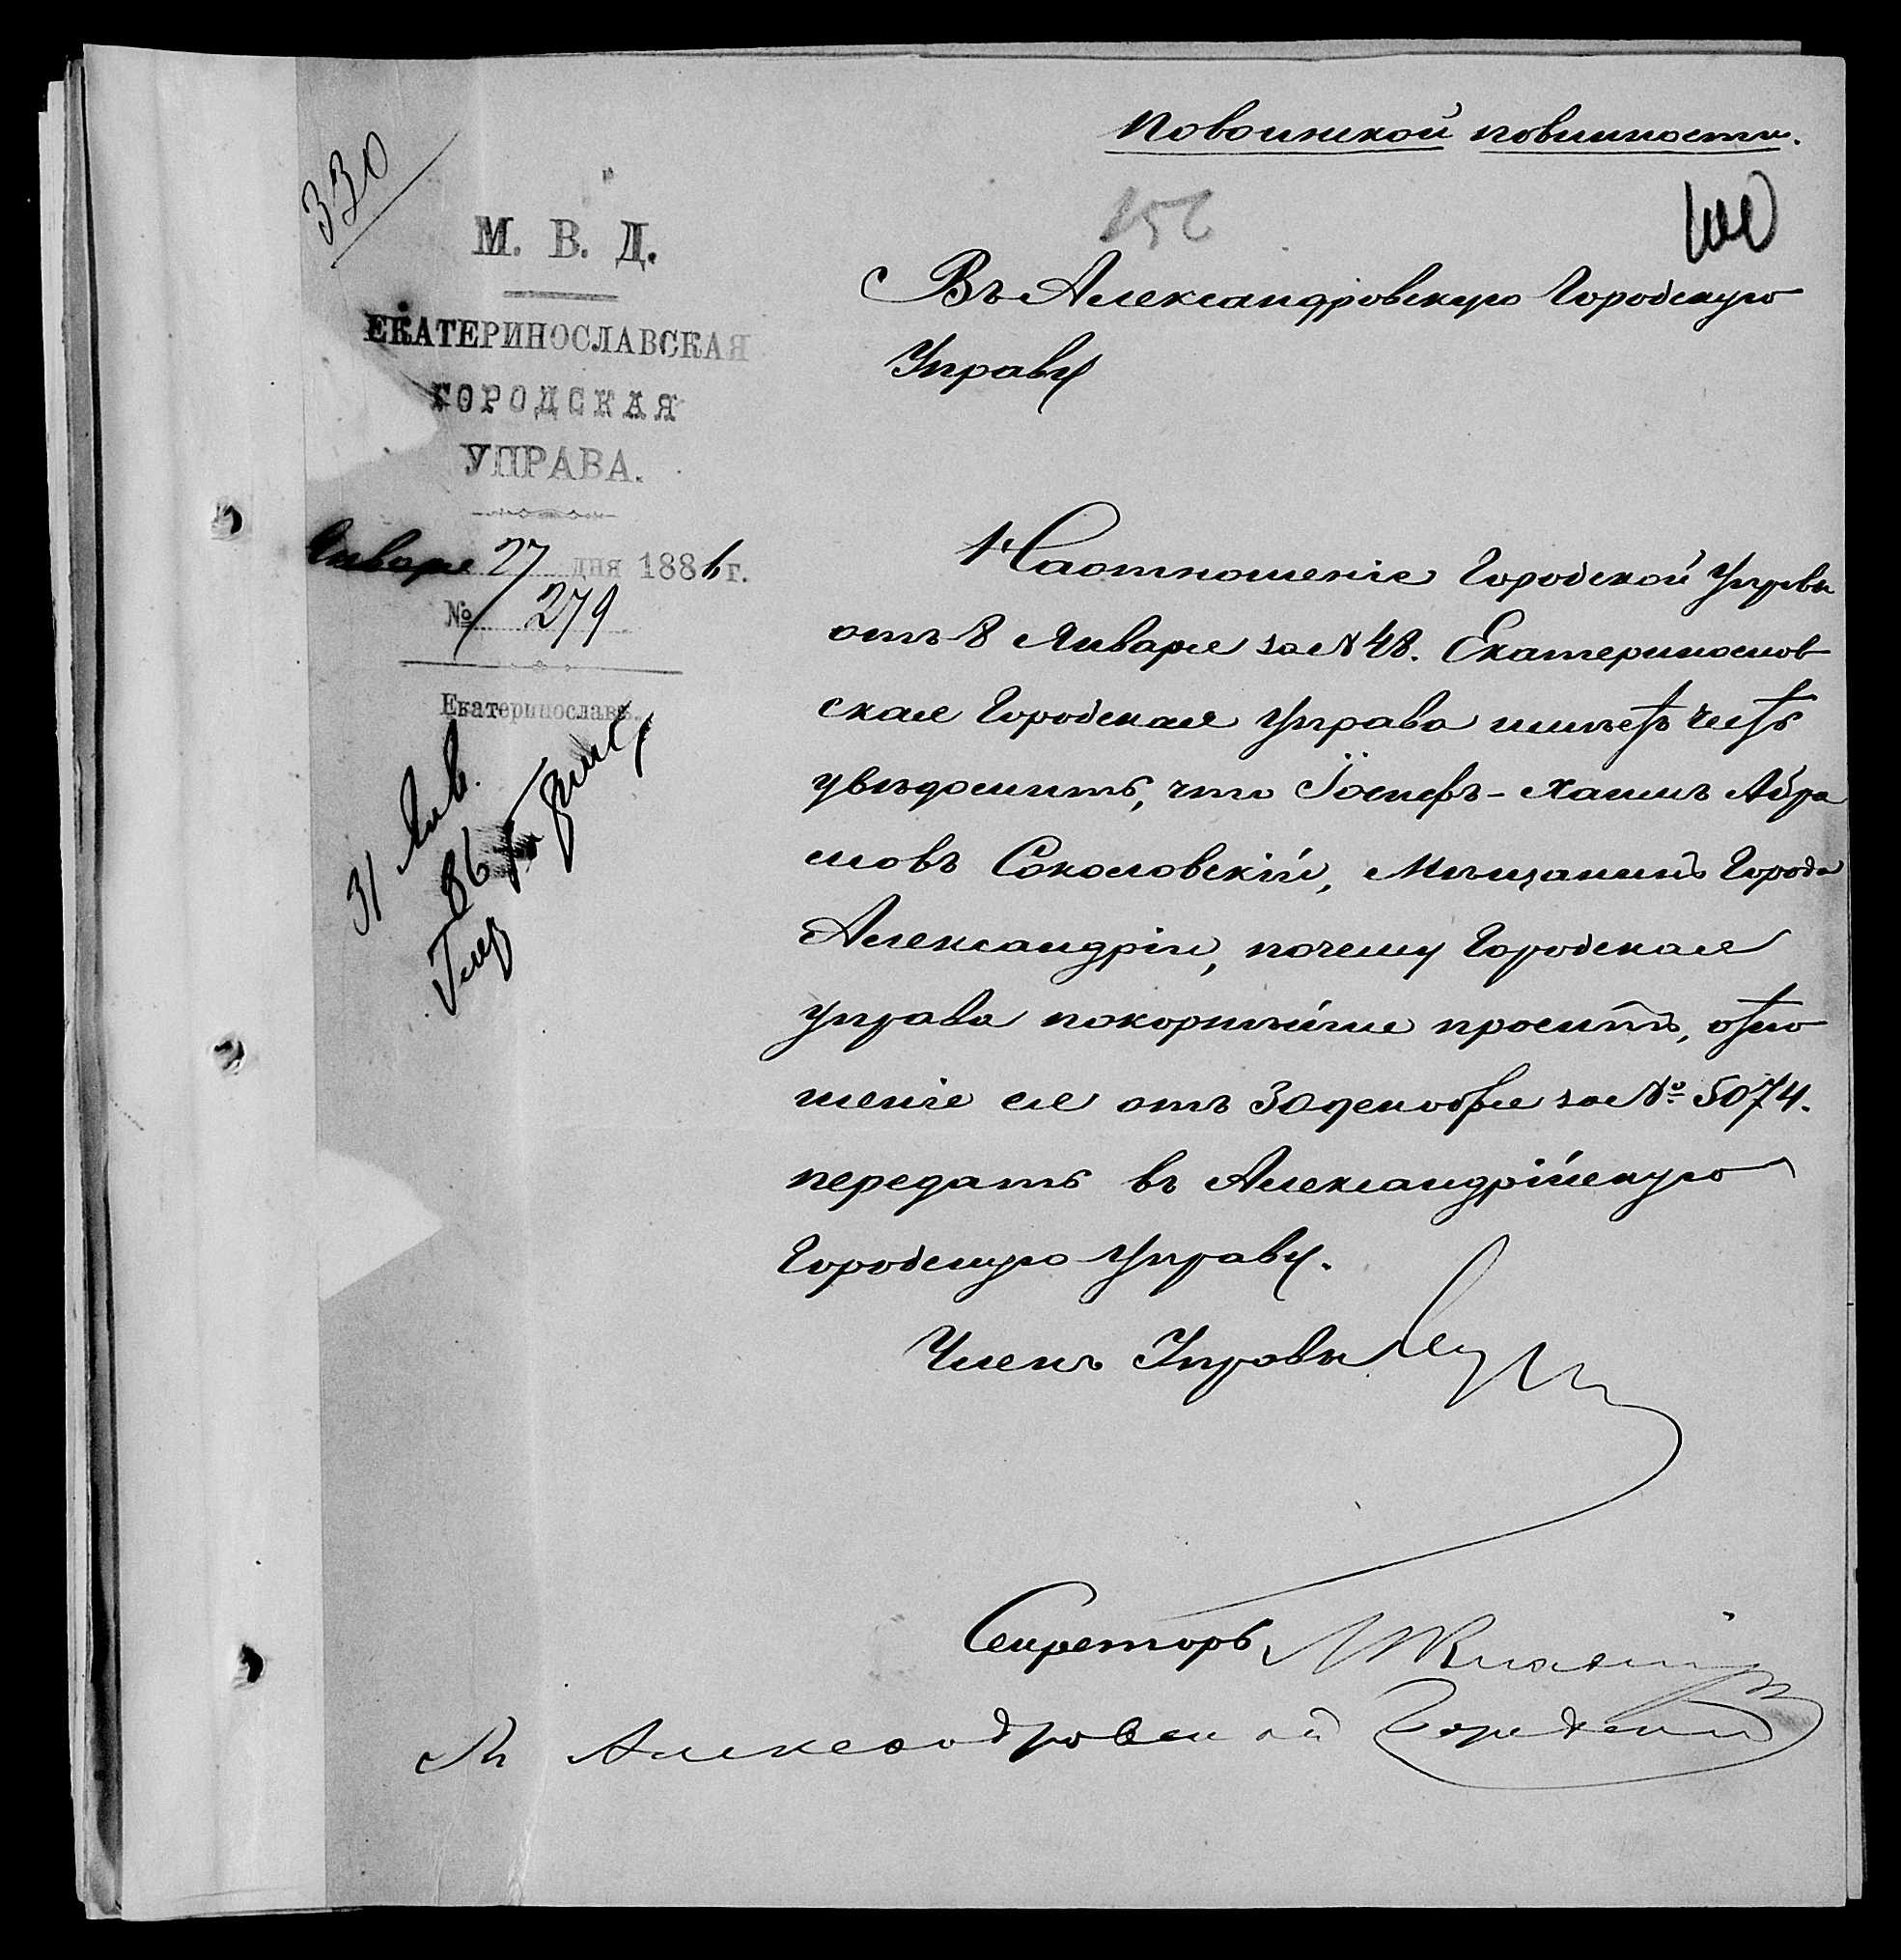 По воинской повинности.
330
156
М. В. Д.
ЕКАТЕРИНОСЛАВСКАЯ
ГОРОДСКАЯ
УПРАВА.
Января 27 дня 1886 г.
№ 279
Екатеринославъ.
31 Янв.
86
Въ Александровскую Городскую
Управу
На отношеніе Городской Управы
отъ 8 Января за № 48. Екатеринослав
ская Городская Управа имѣетъ честь
увѣдомить, что Іосифъ-Хаимъ Абра
мовъ Соколовскій, Мѣщанинъ Города
Александріи, почему Городская
управа покорнѣйше проситъ, отно
шеніе ея отъ 30 декабря за № 5074.
передать въ Александрійскую
Городскую Управу.
Членъ Управы
Секретарь
Александровской Городской